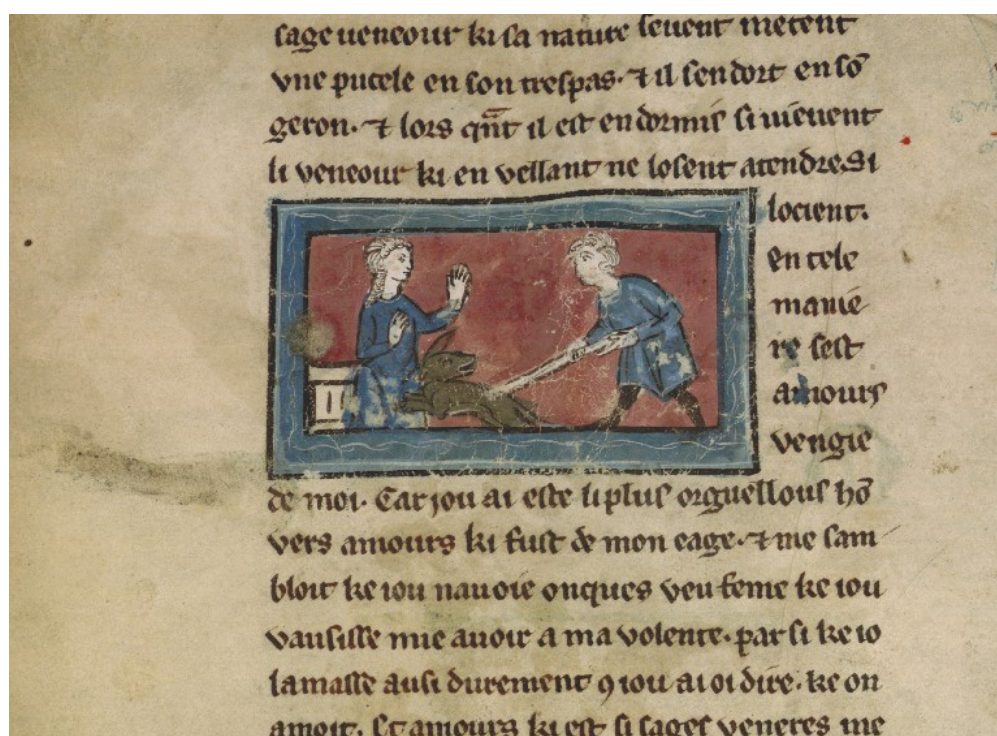 sage ueneour ki sa nature seuent metent
vne pucele en son trespas. ⁊ il sendort en sō
geron. ⁊ lors qn̄t il est endormis si uienent
li veneour ki en vellant ne losent atendre. Si
locient.
En cele
manie
re sest
amours
vengie
de moi. Car jou ai este li plus orguellous hō
vers amours ki fust de mon eage. ⁊ me sam
bloit ke iou nauoie onques veu feme ke iou
vausisse mie auoir a ma volente. par si ke io
lamasse ausi durement ꝯ iou ai oi dire. ke on
amoit. Et amours ki est si sages veneres me